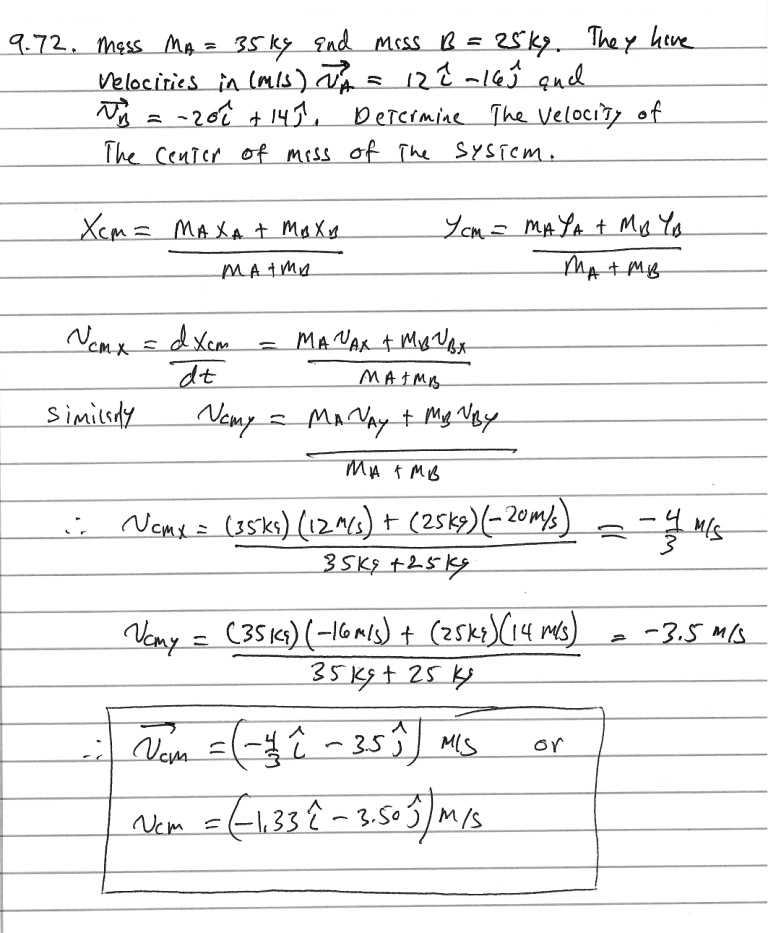 9.72. Mass MA = 35 kg and mass B = 25 kg. They have
velocities in (m/s) v⃗A = 12 î - 16 ĵ and
v⃗B = -20 î + 14 ĵ. Determine The velocity of
The center of mass of The system.
Xcm = (MA XA + MB XB) / (MA + MB)   Ycm = (MA YA + MB YB) / (MA + MB)
vcmx = dXcm / dt = (MA vAX + MB vBX) / (MA + MB)
Similarly vcmy = (MA vAy + MB vBy) / (MA + MB)
∴ vcmx = ((35kg)(12 m/s) + (25kg)(-20 m/s)) / (35kg + 25kg) = -4/3 m/s
vcmy = ((35kg)(-16 m/s) + (25kg)(14 m/s)) / (35 kg + 25 kg) = -3.5 m/s
∴ v⃗cm = (-4/3 î - 3.5 ĵ) m/s or
vcm = (-1.33 î - 3.50 ĵ) m/s